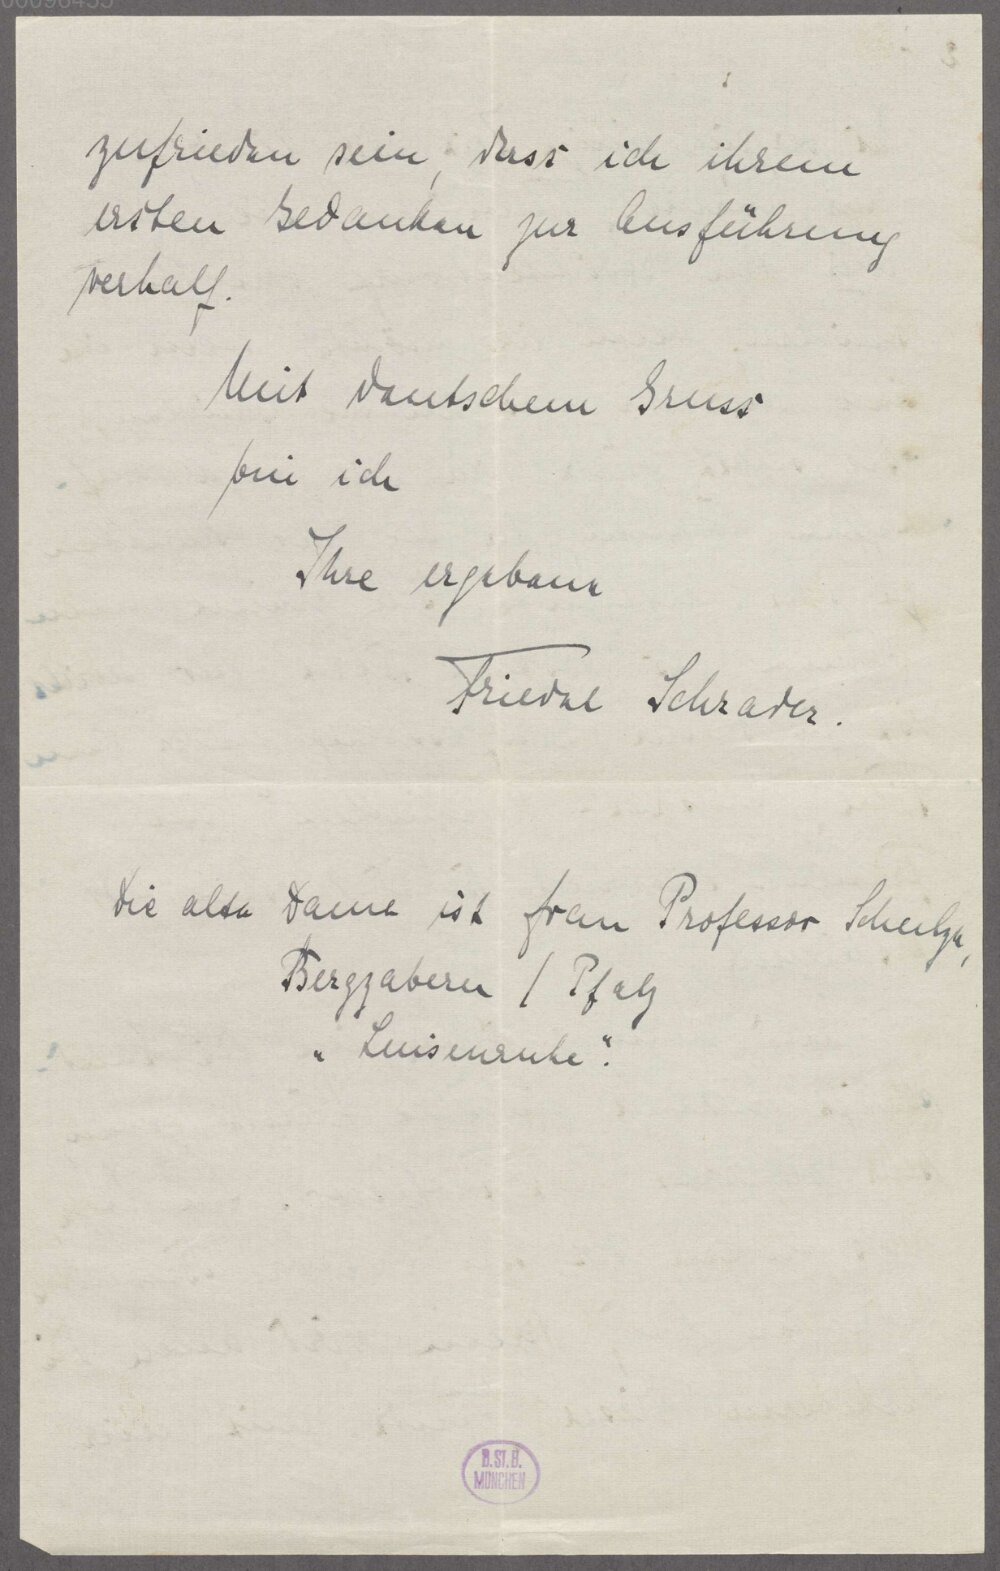 zufrieden sein, dass ich ihrem
ersten Gedanken zur Ausführung
verhalf.
Mit deutschem Gruss
bin ich
Ihre ergebene
Friedel Schrader.
Die alte Dame ist Frau Professor
Bergzabern / Pfalz
„Luisenruhe".
B.St.B.
MÜNCHEN